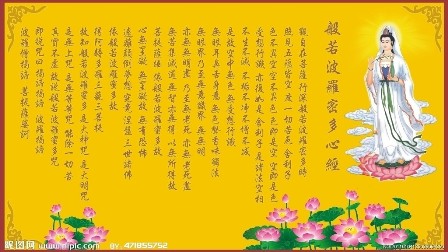 般若波羅密多心經
觀自在菩薩 行深般若波羅密多時
照見五蘊皆空 度一切苦厄 舍利子
色不異空 空不異色 色即是空 空即是色
受想行識 亦復如是 舍利子 是諸法空相
不生不滅 不垢不淨 不增不減
是故空中無色 無受想行識
無眼耳鼻舌身意 無色聲香味觸法
無眼界 乃至無意識界 無無明
亦無無明盡 乃至無老死 亦無老死盡
無苦集滅道 無智亦無得 以無所得故
菩提薩埵 依般若波羅密多故
心無罣礙 無罣礙故 無有恐怖
遠離顛倒夢想 究竟涅槃 三世諸佛
依般若波羅密多故
得阿耨多羅三藐三菩提
故知般若波羅密多 是大神咒 是大明咒
是無上咒 是無等等咒 能除一切苦
真實不虛 故說般若波羅密多咒
即說咒曰 揭諦揭諦 波羅揭諦
波羅僧揭諦 菩提薩婆訶
昵图网 BY: 471855752
www.nipic.com